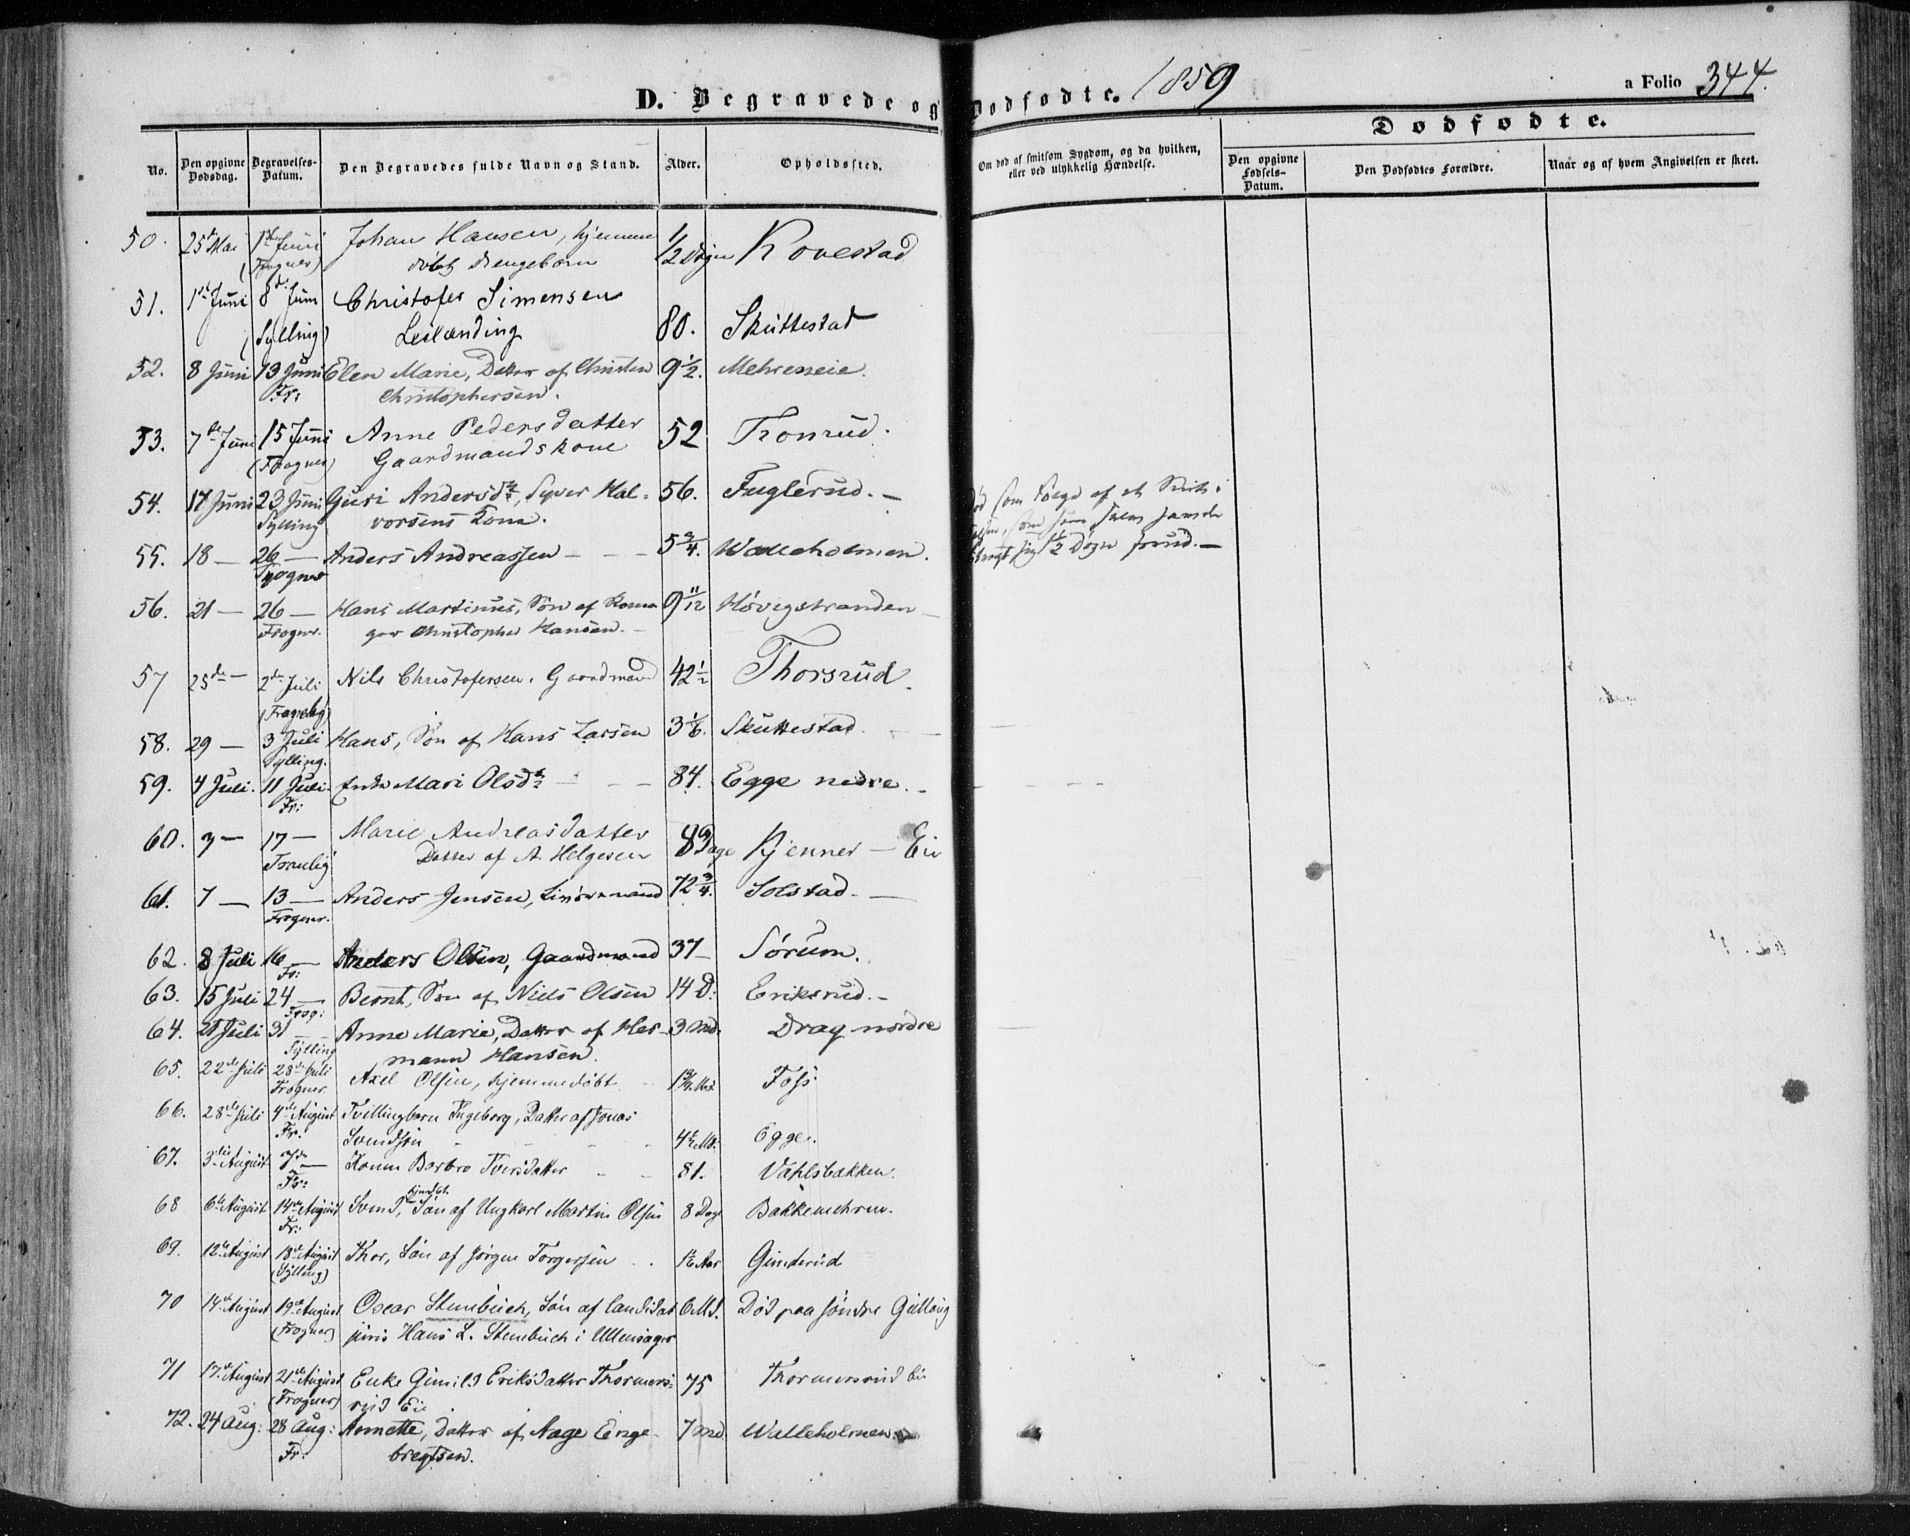 D. Begravede og Dodfodte. 1859 a Folio 344.
Dodfodte.
No. Den opgivne Dodsdag. Begravelses-Datum. Den Begravedes fulde Navn og Stand. Alder. Opholdssted. Om dod af smitsom Sygdom, og da hvilken, eller ved ulykkelig Hændelse. Den opgivne Fodsels-Datum. Den Dodfodtes Forældre. Naar og af hvem Angivelsen er skeet.
50. 25de Mai 1ste Juni Johan Hansen, hjemme 1/2 Døgn Rovestad
(Frogner) døbt drengebarn
51. 1ste Juni 8de Juni Christofer Simensen
(Sylling) Leilænding 80. Skuttestad
52. 8 Juni 13 Juni Elen Marie, Datter af Christen 9 1/2. Mehreneie.
Fr: Christophersen.
53. 7de Juni 15 Juni Anne Pedersdatter 52 Tronrud.
(Frogner) Gaardmandskone
54. 17 Juni 23 Juni Guri Andersdtr, Syver Hal- 56. Fuglerud. – Død som Følge af et
Sylling vorsens Kone. som
55. 18 – 26 – Anders Andreassen – – 5 3/4. Walleholmen. 1 1/2 Døgn forud. –
Frogner
56. 21 – 26 – Hans Martinus, Søn af 9 11/12 Høvigstranden –
Frogner. Christopher Hansen. –
57 25de – 2de Juli Nils Christofersen. Gaardmand 42 1/2 Thorsrud.
58. 29 – 3 Juli Hans, Søn af Hans Larsen 3 1/6. Skuttestad.
Sylling.
59. 4 Juli. 11 Juli. Enke Mari Olsdtr – – 84. Egge nedre. –
Fr:
60. 3 – 17 – Marie Andreasdatter 8 Dage Kjenner – Eie
Datter af A. Helgesen
61. 7 – 13 – Anders Jensen, 72 3/4. Solstad. –
Frogner.
62. 8 Juli 16 – Anders Olsen, Gaardmand 37 – Sørum.
Fr:
63. 15 Juli 24 – Bernt, Søn af Niels Olsen 14 D: Eriksrud. –
Frog:
64. 21 Juli 31 – Anne Marie, Datter af Her- 3 Md. Drag nordre
Sylling mann Hansen.
65. 22de Juli 28de Juli Axel Olsen, hjemmedøbt Foss
Frogner
66. 28de Juli 4de August Tvillingbarn Ingeborg, Datter af Jonas
Fr. Svendsen 4 1/2 Md. Egge.
67. 3die August 7de – Kone Barbro Iversdatter – – 81. Vahlsbakken.
Fr:
68 6te August 14de August Svend, hjmdbt. Søn af Ungkarl Martin Olsen 8 Dage Bakkemehren.
Fr:
69. 12te August 18de August Thor, Søn af Jørgen Torgersen . . Aar Gunderud
(Sylling)
70 14de August 19de August Oscar Steenbuch, Søn af Candidat 6 Md. Død paa søndre Gullaug
(Frogner) juris Hans L. Steenbuch i Ullensager
71 17de August 21de August Enke Gunild Eriksdatter Thormors- 75 Thormorsrud Eie
(Frogner) rud Eie
72. 24 Aug: 28 Aug: Annette, Datter af Aage Enge- 7 Md Walleholmen.
Fr: bregtsen.